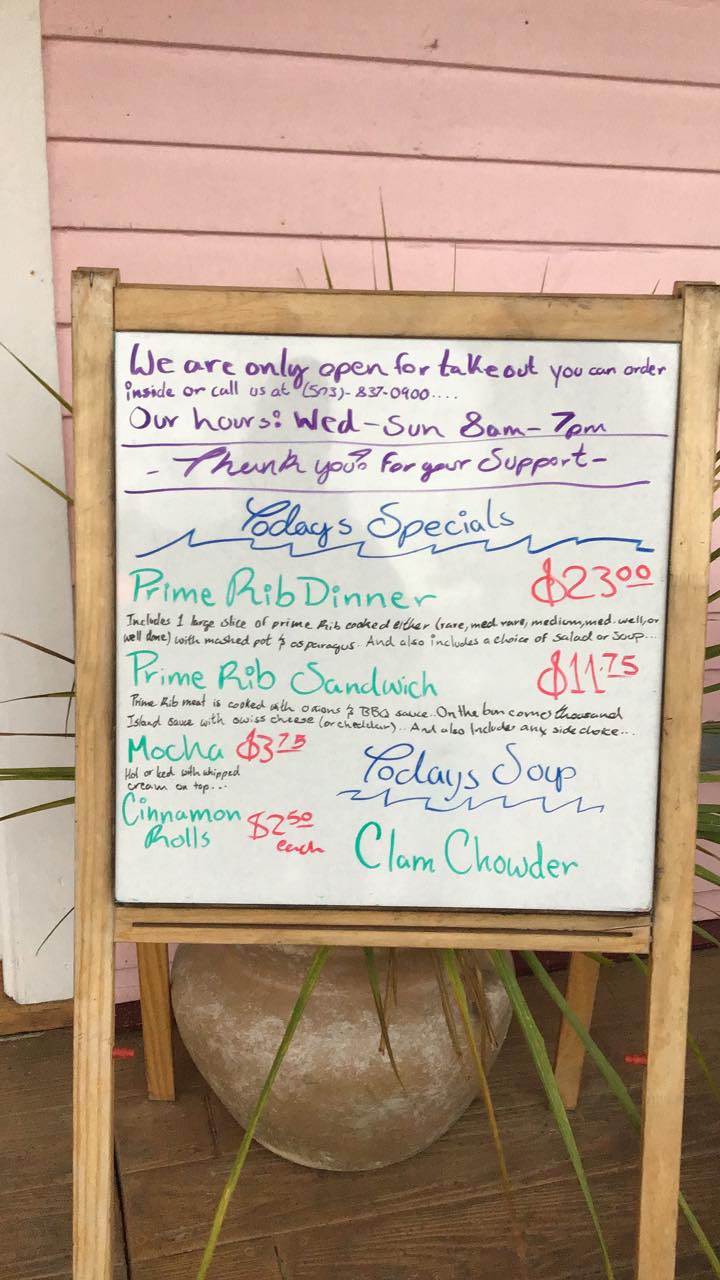 We are only open for takeout you can order
inside or call us at (503)-837-0900....
Our hours: Wed-Sun 8am-7pm
- Thank you? For your Support-
Todays Specials
Prime Rib Dinner $23.00
Includes 1 large slice of prime Rib cooked either (rare, med rare, medium, med. well, or
well done) with mashed pot & asparagus. And also includes a choice of Salad or Soup...
Prime Rib Sandwich $11.75
Prime Rib meat is cooked with onions & BBQ sauce.. On the bun comes thousand
Island sauce with swiss cheese (or cheddar)... And also Includes any side choice...
Mocha $3.75
Hot or Iced with whipped
cream on top...
Cinnamon
Rolls $2.50
each
Todays Soup
Clam Chowder